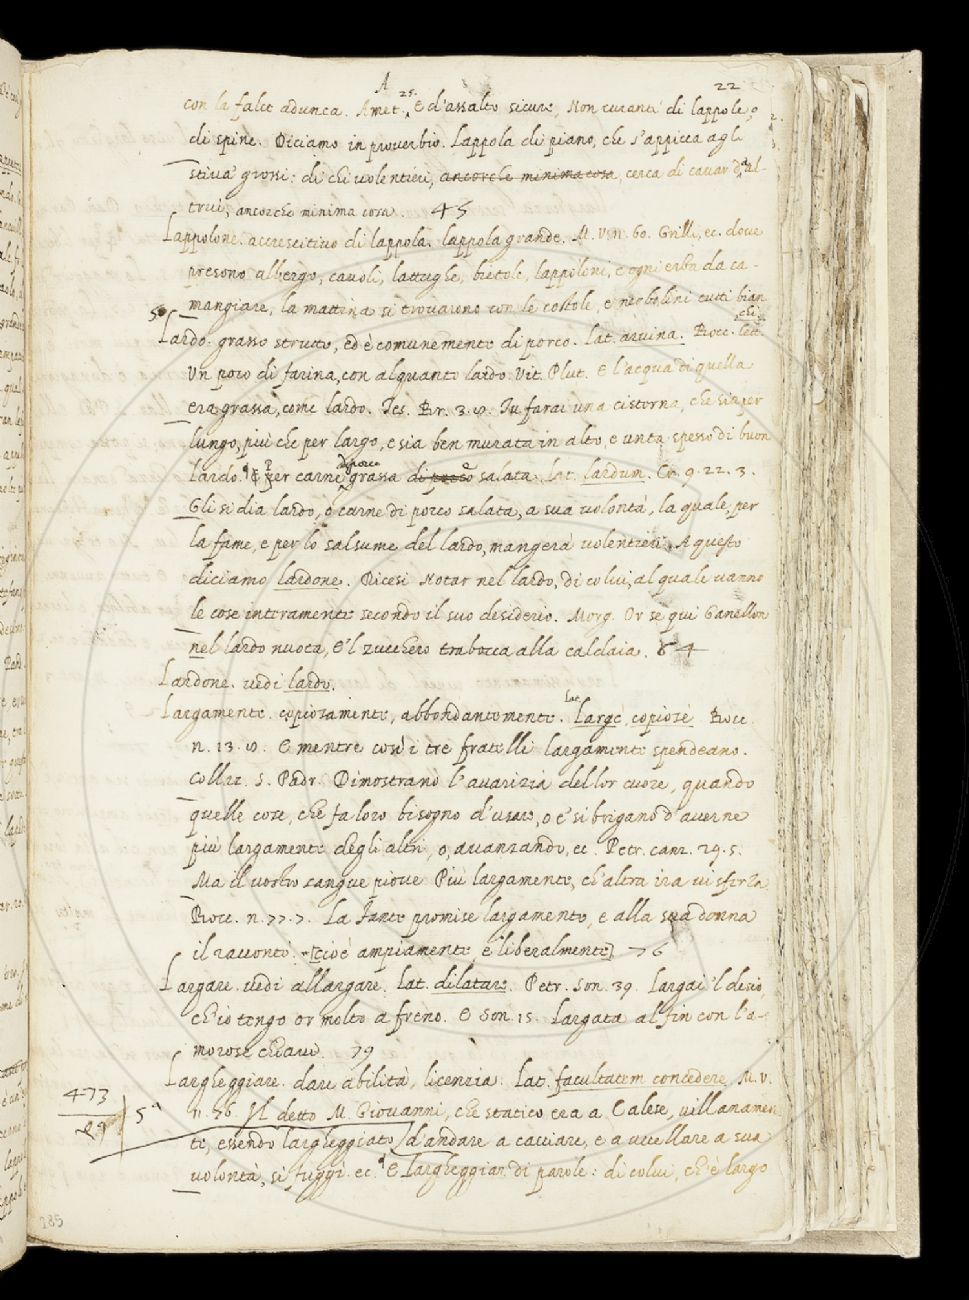 A 22
con la falce adunca. Amet. 25. E d'assalto sicure, Non curanti di lappole, o
di spine. Diciamo in proverbio. Lappola di piano, che s'appicca agli
stivai grossi: di chi volentieri, ancorche minima cosa, cerca di cavar da al-
trui, ancorche minima cosa. 45
Lappolone. accrescitivo di lappola. lappola grande. M. V. 11. 60. Grilli, ec. dove
presono albergo, cavoli, lattughe, bietole, lappoloni, e ogni erba da ca-
mangiare, la mattina si trovarono con le costole, e nerbolini tutti bian
chi.
Lardo. grasso strutto, ed è comunemente di porco. Lat. arvina. Bocc. lett.
Un poco di farina, con alquanto lardo. Vit. Plut. E l'acqua di quella
era grassa, come lardo. Tes. Br. 3. 9. Tu farai una cisterna, che sia per
lungo, più che per largo, e sia ben murata in alto, e unta spesso di buon
lardo. E per carne di porco grassa di porco salata. Lat. lardum. Cr. 9. 22. 3.
Gli si dia lardo, o carne di porco salata, a sua volontà, la quale, per
la fame, e per lo salsume del lardo, mangerà volentieri. A questo
diciamo lardone. Dicesi Notar nel lardo, di colui, al quale vanno
le cose interamente secondo il suo desiderio. Morg. Or se qui Ganellon
nel lardo nuota, E'l zucchero trabocca alla caldaia. 64
Lardone. vedi lardo.
Largamente. copiosamente, abbondantemente. Lat. large, copiose Bocc.
n. 13. 9. E mentre così i tre fratelli largamente spendeano.
Collaz. S. Padr. Dimostrano l'avarizia del lor cuore, quando
quelle cose, che fa loro bisogno d'usare, o e' si brigano d'averne
più largamente degli altri, o, avanzando, ec. Petr. canz. 29. 5.
Ma il vostro sangue piove Più largamente, ch'altra ira vi sferza
Bocc. n. 77. 7. La fante promise largamente, e alla sua donna
il raccontò. [cioè ampiamente, e liberalmente] 76
Largare. vedi allargare. Lat. dilatare. Petr. Son. 39. Largai 'l desio,
ch'io tengo or molto a freno. E Son. 15. Largata al fin con l'a-
morose chiavi. 79
Largheggiare. dare abilità, licenzia. Lat. facultatem concedere, M. V.
473
5 11. 56. Il detto M. Giovanni, che statico era a Calese, villanamen
te, essendo largheggiato d'andare a cacciare, e a uccellare a sua
volontà, si fuggì. ec. E Largheggiar di parole: di colui, ch'è largo
285